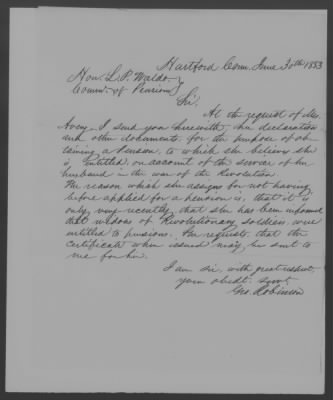 Hartford Conn. June 30th 1853
Hon. L. P. Waldo
Commr. of Pensions
Sir.
At the request of Mrs.
Avery I send you herewith, her declaration
and other documents for the purpose of ob-
taining a Pension, to which she believes she
is entitled on account of the service of her
husband in the war of the Revolution
The reason which she assigns for not having
before applied for a pension is, that it is
only very recently that she has been informed
that widows of Revolutionary soldiers were
entitled to pensions. She requests that the
certificate when issued may be sent to
me for her.
I am sir, with great respect,
your obedt. Servt.
Geo. Robinson